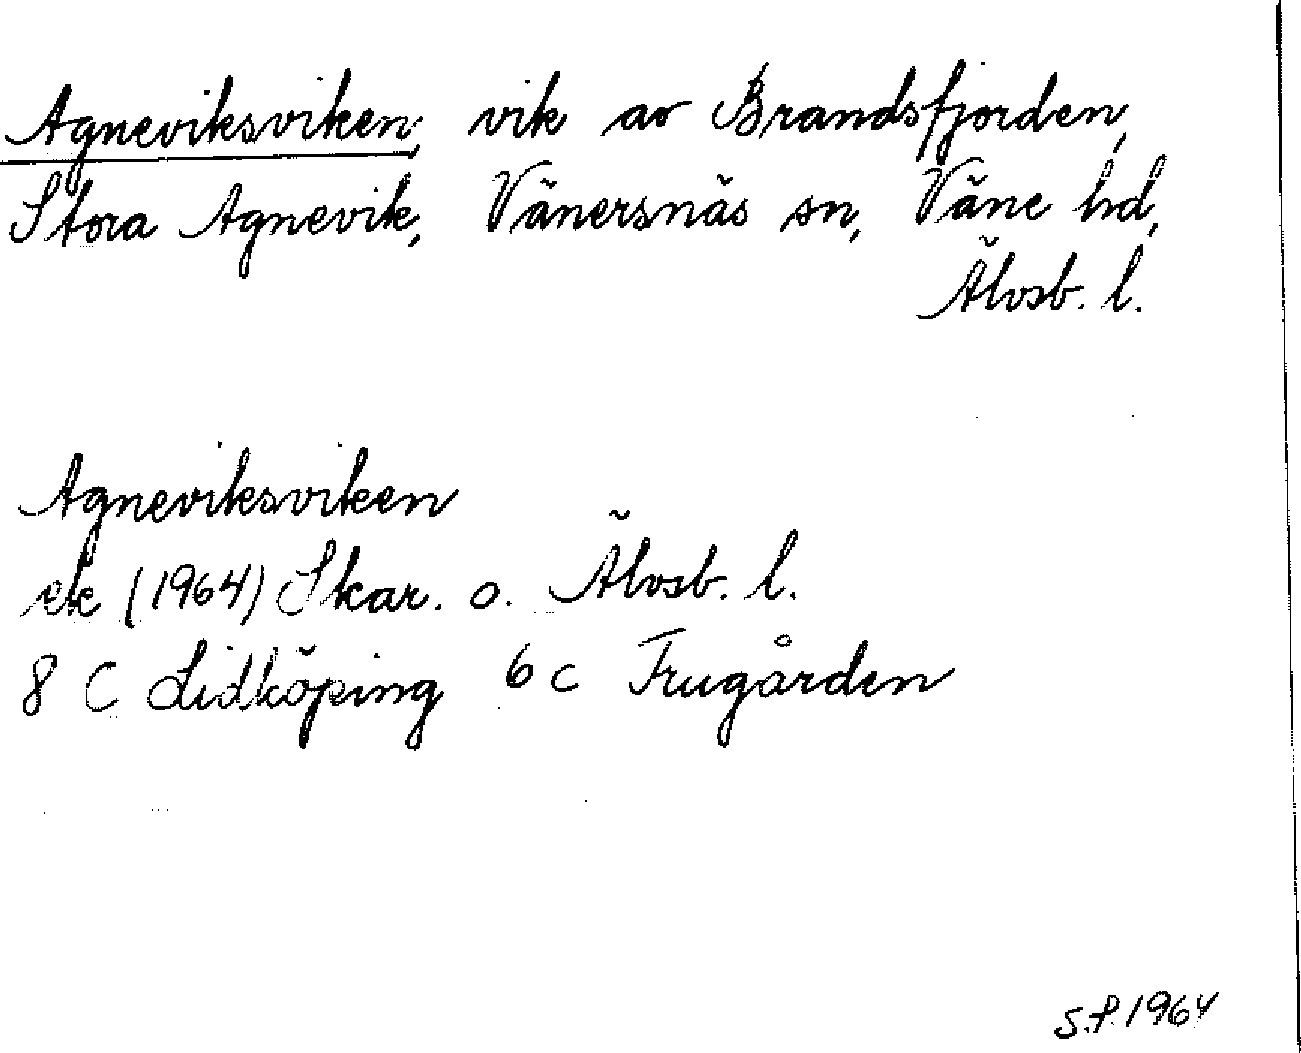 Agneviksviken, vik av Brandsfjorden,
Stora Agnevik, Vänersnäs sn, Väne hd,
Älvsb. l.
Agneviksviken
ek (1964) Skar. o. Älvsb. l.
8 C Lidköping 6 c Frugården
S.P. 1964